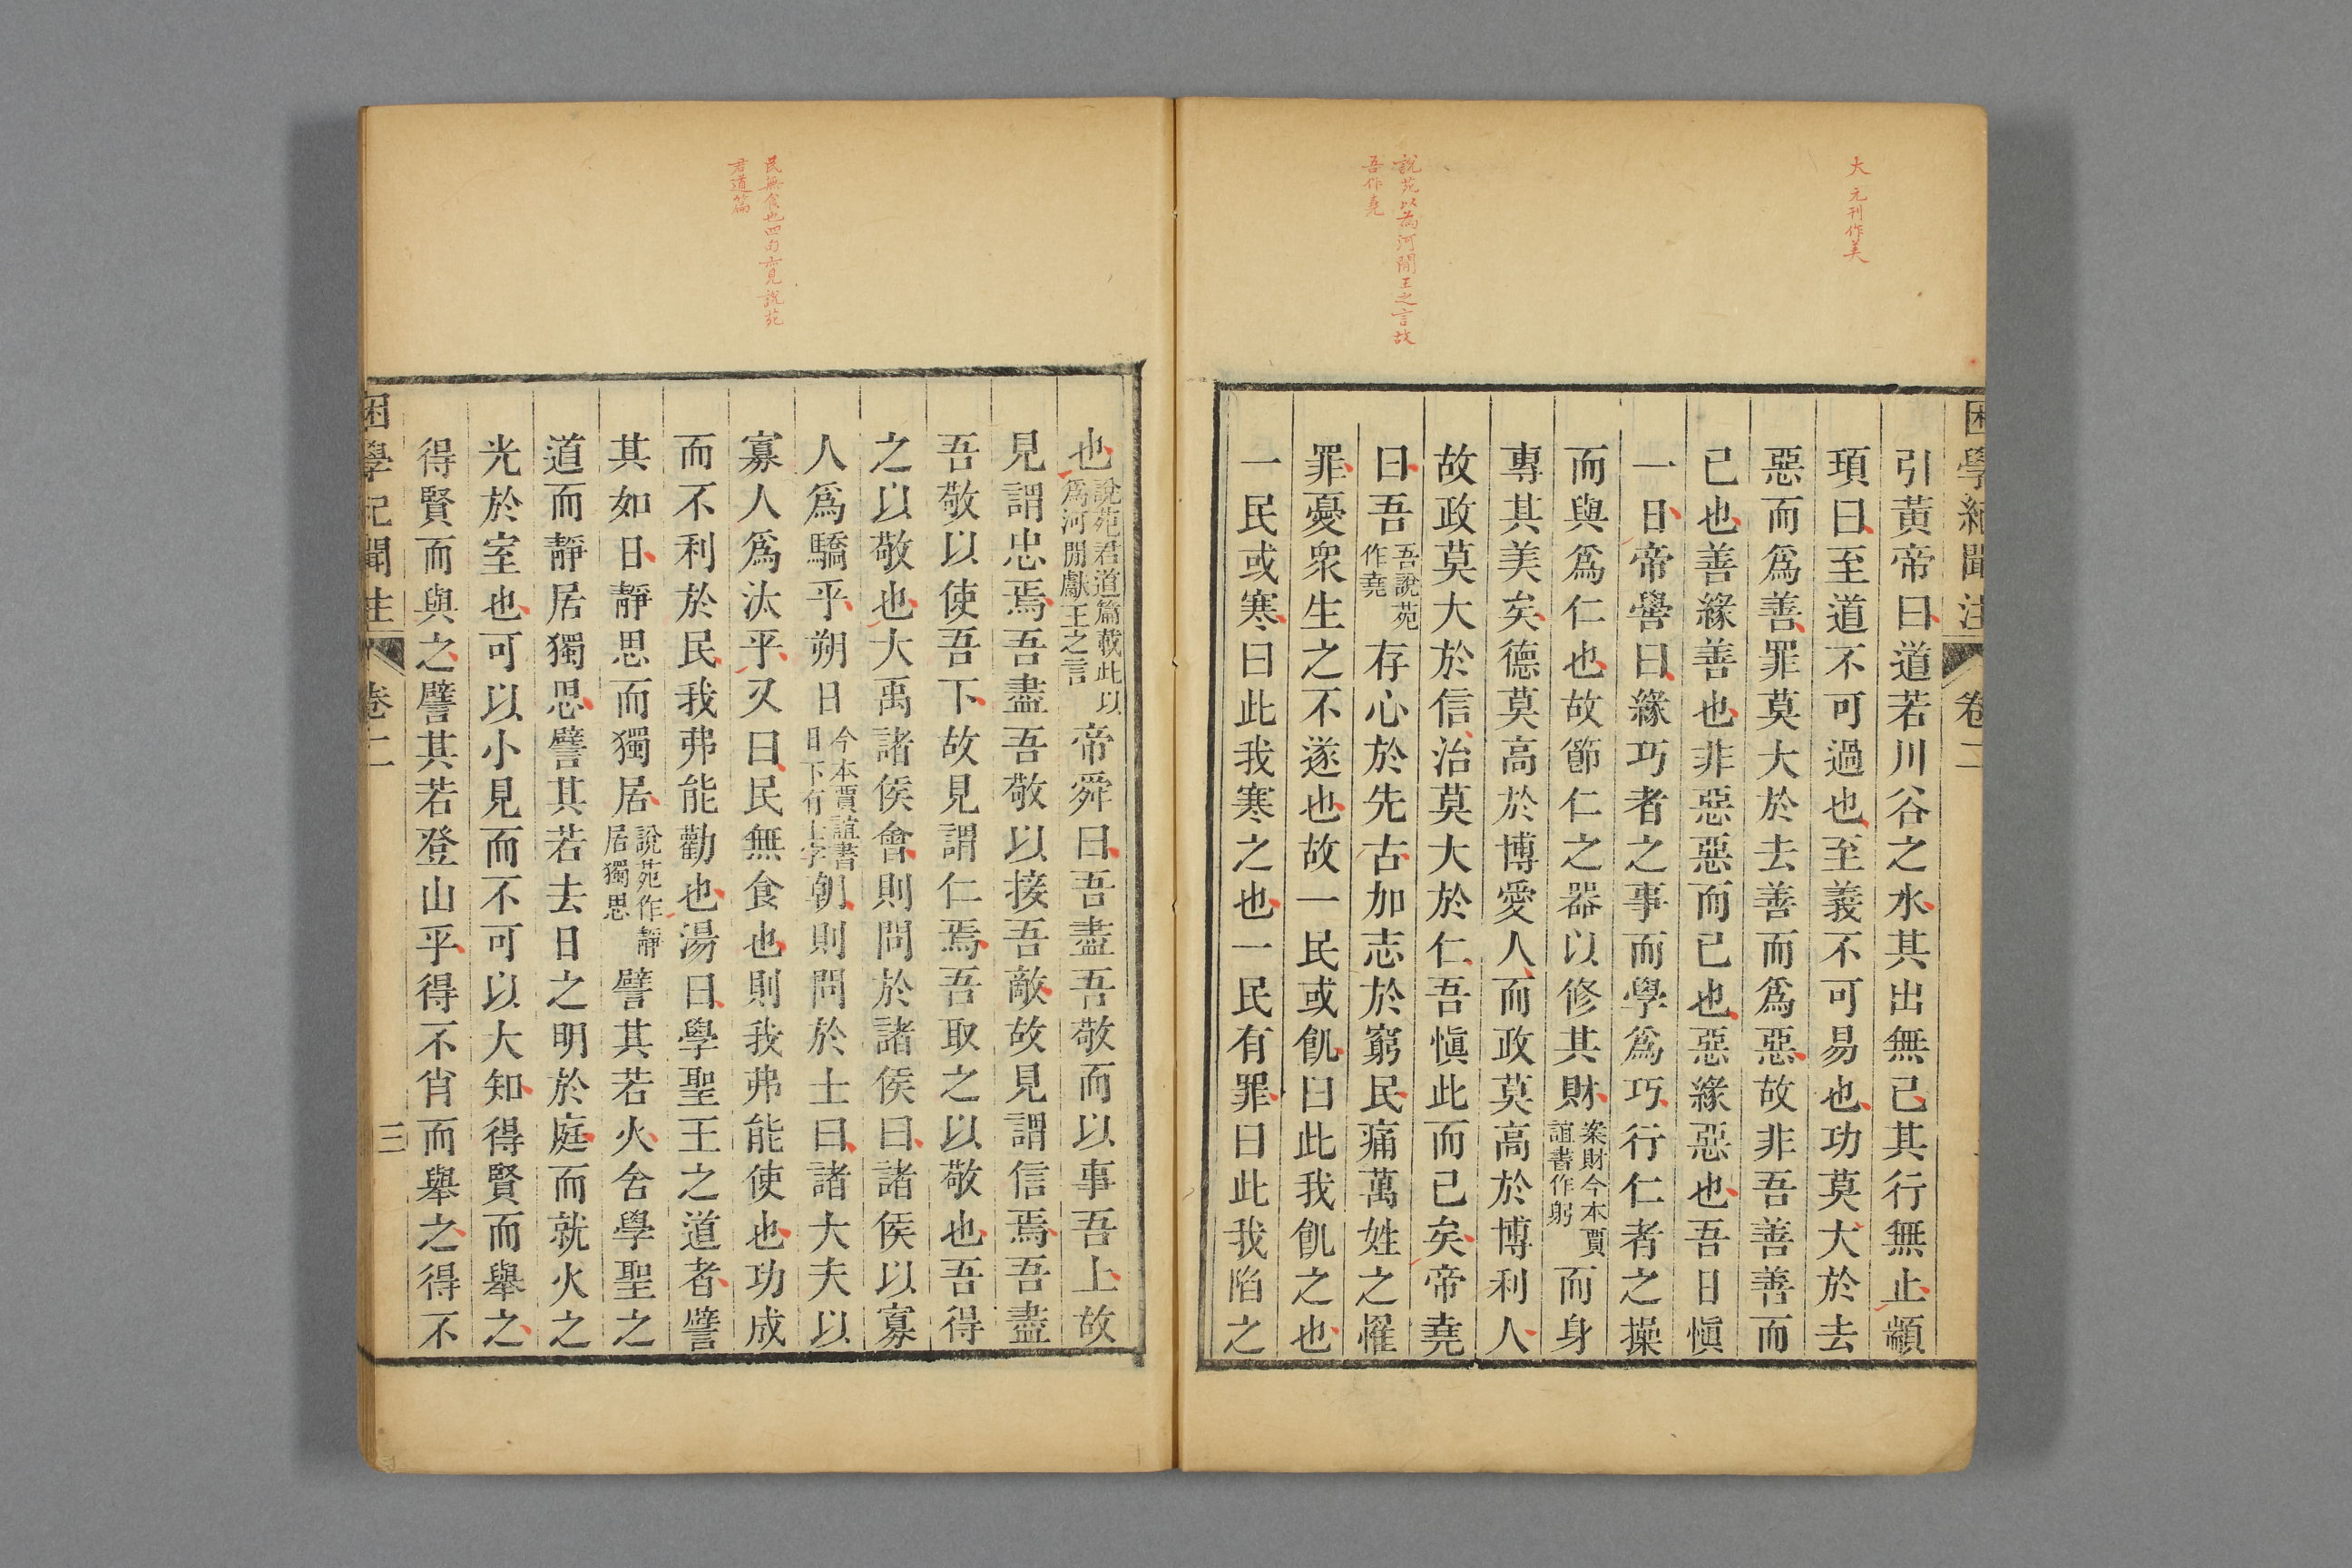 大 元刊作美
說苑以爲河閒王之言故
吾作堯
困學紀聞注 卷二
引黃帝曰道若川谷之水其出無已其行無止顓
頊曰至道不可過也至義不可易也功莫大於去
惡而爲善罪莫大於去善而爲惡故非吾善善而
已也善緣善也非惡惡而已也惡緣惡也吾日慎
一日帝嚳曰緣巧者之事而學爲巧行仁者之操
而與爲仁也故節仁之器以修其財案財今本賈誼書作躬而身
專其美矣德莫高於博愛人而政莫高於博利人
故政莫大於信治莫大於仁吾慎此而已矣帝堯
曰吾吾說苑作堯存心於先古加志於窮民痛萬姓之懼
罪憂衆生之不遂也故一民或飢曰此我飢之也
一民或寒曰此我寒之也一民有罪曰此我陷之
民無食也四句亦見說苑
君道篇
也說苑君道篇載此以爲河閒獻王之言帝舜曰吾盡吾敬而以事吾上故
見謂忠焉吾盡吾敬以接吾敵故見謂信焉吾盡
吾敬以使吾下故見謂仁焉吾取之以敬也吾得
之以敬也大禹諸侯會則問於諸侯曰諸侯以寡
人爲驕乎朔日今本賈誼書日下有士字朝則問於士曰諸大夫以
寡人爲汰乎又曰民無食也則我弗能使也功成
而不利於民我弗能勸也湯曰學聖王之道者譬
其如日靜思而獨居說苑作靜居獨思譬其若火舍學聖之
道而靜居獨思譬其若去日之明於庭而就火之
光於室也可以小見而不可以大知得賢而舉之
得賢而與之譬其若登山乎得不肖而舉之得不
困學紀聞注 卷二 三